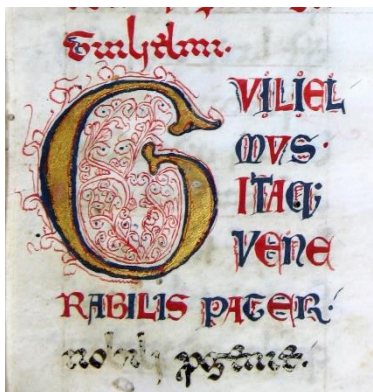 Guilhelmi.
GVILIEL
MVS.
ITAQ;
VENE
RABILIS PATER.
nobilis